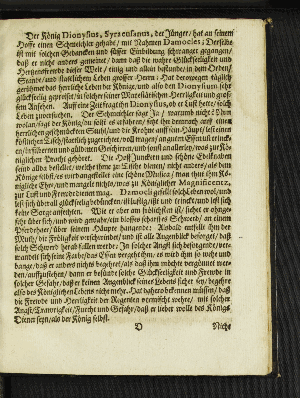 Der König Dionysius, Syracusanus, der Jünger, hat an seinem
Hoffe einen Schmeichler gehabt, mit Nahmen Damocles; Derselbe
ist mit solchen Gedancken und süsser Einbildung schwanger gegangen,
daß er nicht anders gemeinet, dann daß die wahre Glückseligkeit und
Hertzensfreude dieser Welt, einig und allein bestünde, in dem Orden,
Stande, und Fürstlichem Leben grosser Herrn: Hat derowegen täglich
gerühmet das herrliche Leben der Könige, und also den Dionysium sehr
glückselig gepreiset, in solcher seiner Majestätischen Herrligkeit und gros-
sem Ansehen. Auff eine Zeit fragt ihn Dionysius, ob er Lust hette, solch
Leben zuversuchen. Der Schmeichler sagt Ja, warumb nicht? Nun
wolan, sagt der König, du solst es erfahren, setzet ihn demnach auff einen
herrlichen geschmückten Stuhl, und die Krohne auff sein Häupt, lest einen
köstlichen Tisch, stattlich zugerichtet, voll mangerley an gutem Essen und trincken
in silbernen und güldnen Geschirren, und sonst an allerley, was zur Kö-
niglichen Pracht gehöret. Die Hoff Junckern und schöne Edelknaben
seind allda bestellet, welche ihme zu Tische dienen, nicht anders, als dem
Könige selbst, es wird angestellet eine schöne Musica, man thut ihm Kö-
nigliche Ehre, und mangelt nichts, was zu Königlicher Magnificentz,
zur Lust und Frewde dienen mag. Damocli gefelt solch Leben wol, und
lest sich überall glückselig bedüncken, ist lustig, isst und trincket, und lest sich
keine Sorge anfechten. Wie er aber am frölichsten ist, siehet er ohnge-
fehr über sich, und wird gewahr, ein blosses scharffes Schwerd, an einem
Pferdehaar, über seinem Häupte hangende: Alsbald entfellt ihm der
Muth, die Frölichkeit verschwindet, und ist alle Augenblick besorget, daß
solch Schwerd herab fallen werde: In solcher Angst sich befürchtende, ver-
wandelt sich seine Farbe, das Essen vergehet ihm, es wird ihm so wehe und
bange, daß er anders nichts begehret, als daß ihm möchte vergünnet wer-
den, auffzustehen, dann er befünde solche Glückseeligkeit und Frewde in
solcher Gefahr, daß er keinen Augenblick seines Lebens sicher sey, begehre
also des Königlichen Lebens nicht mehr. Hat dahero bekennen müssen, daß
die Frewde und Herrligkeit der Regenten vermischt wehre, mit solcher
Angst, Trawrigkeit, Furcht und Gefahr, daß er lieber wolle des Königs
Diener seyn, als der König selbst.
D
Nicht